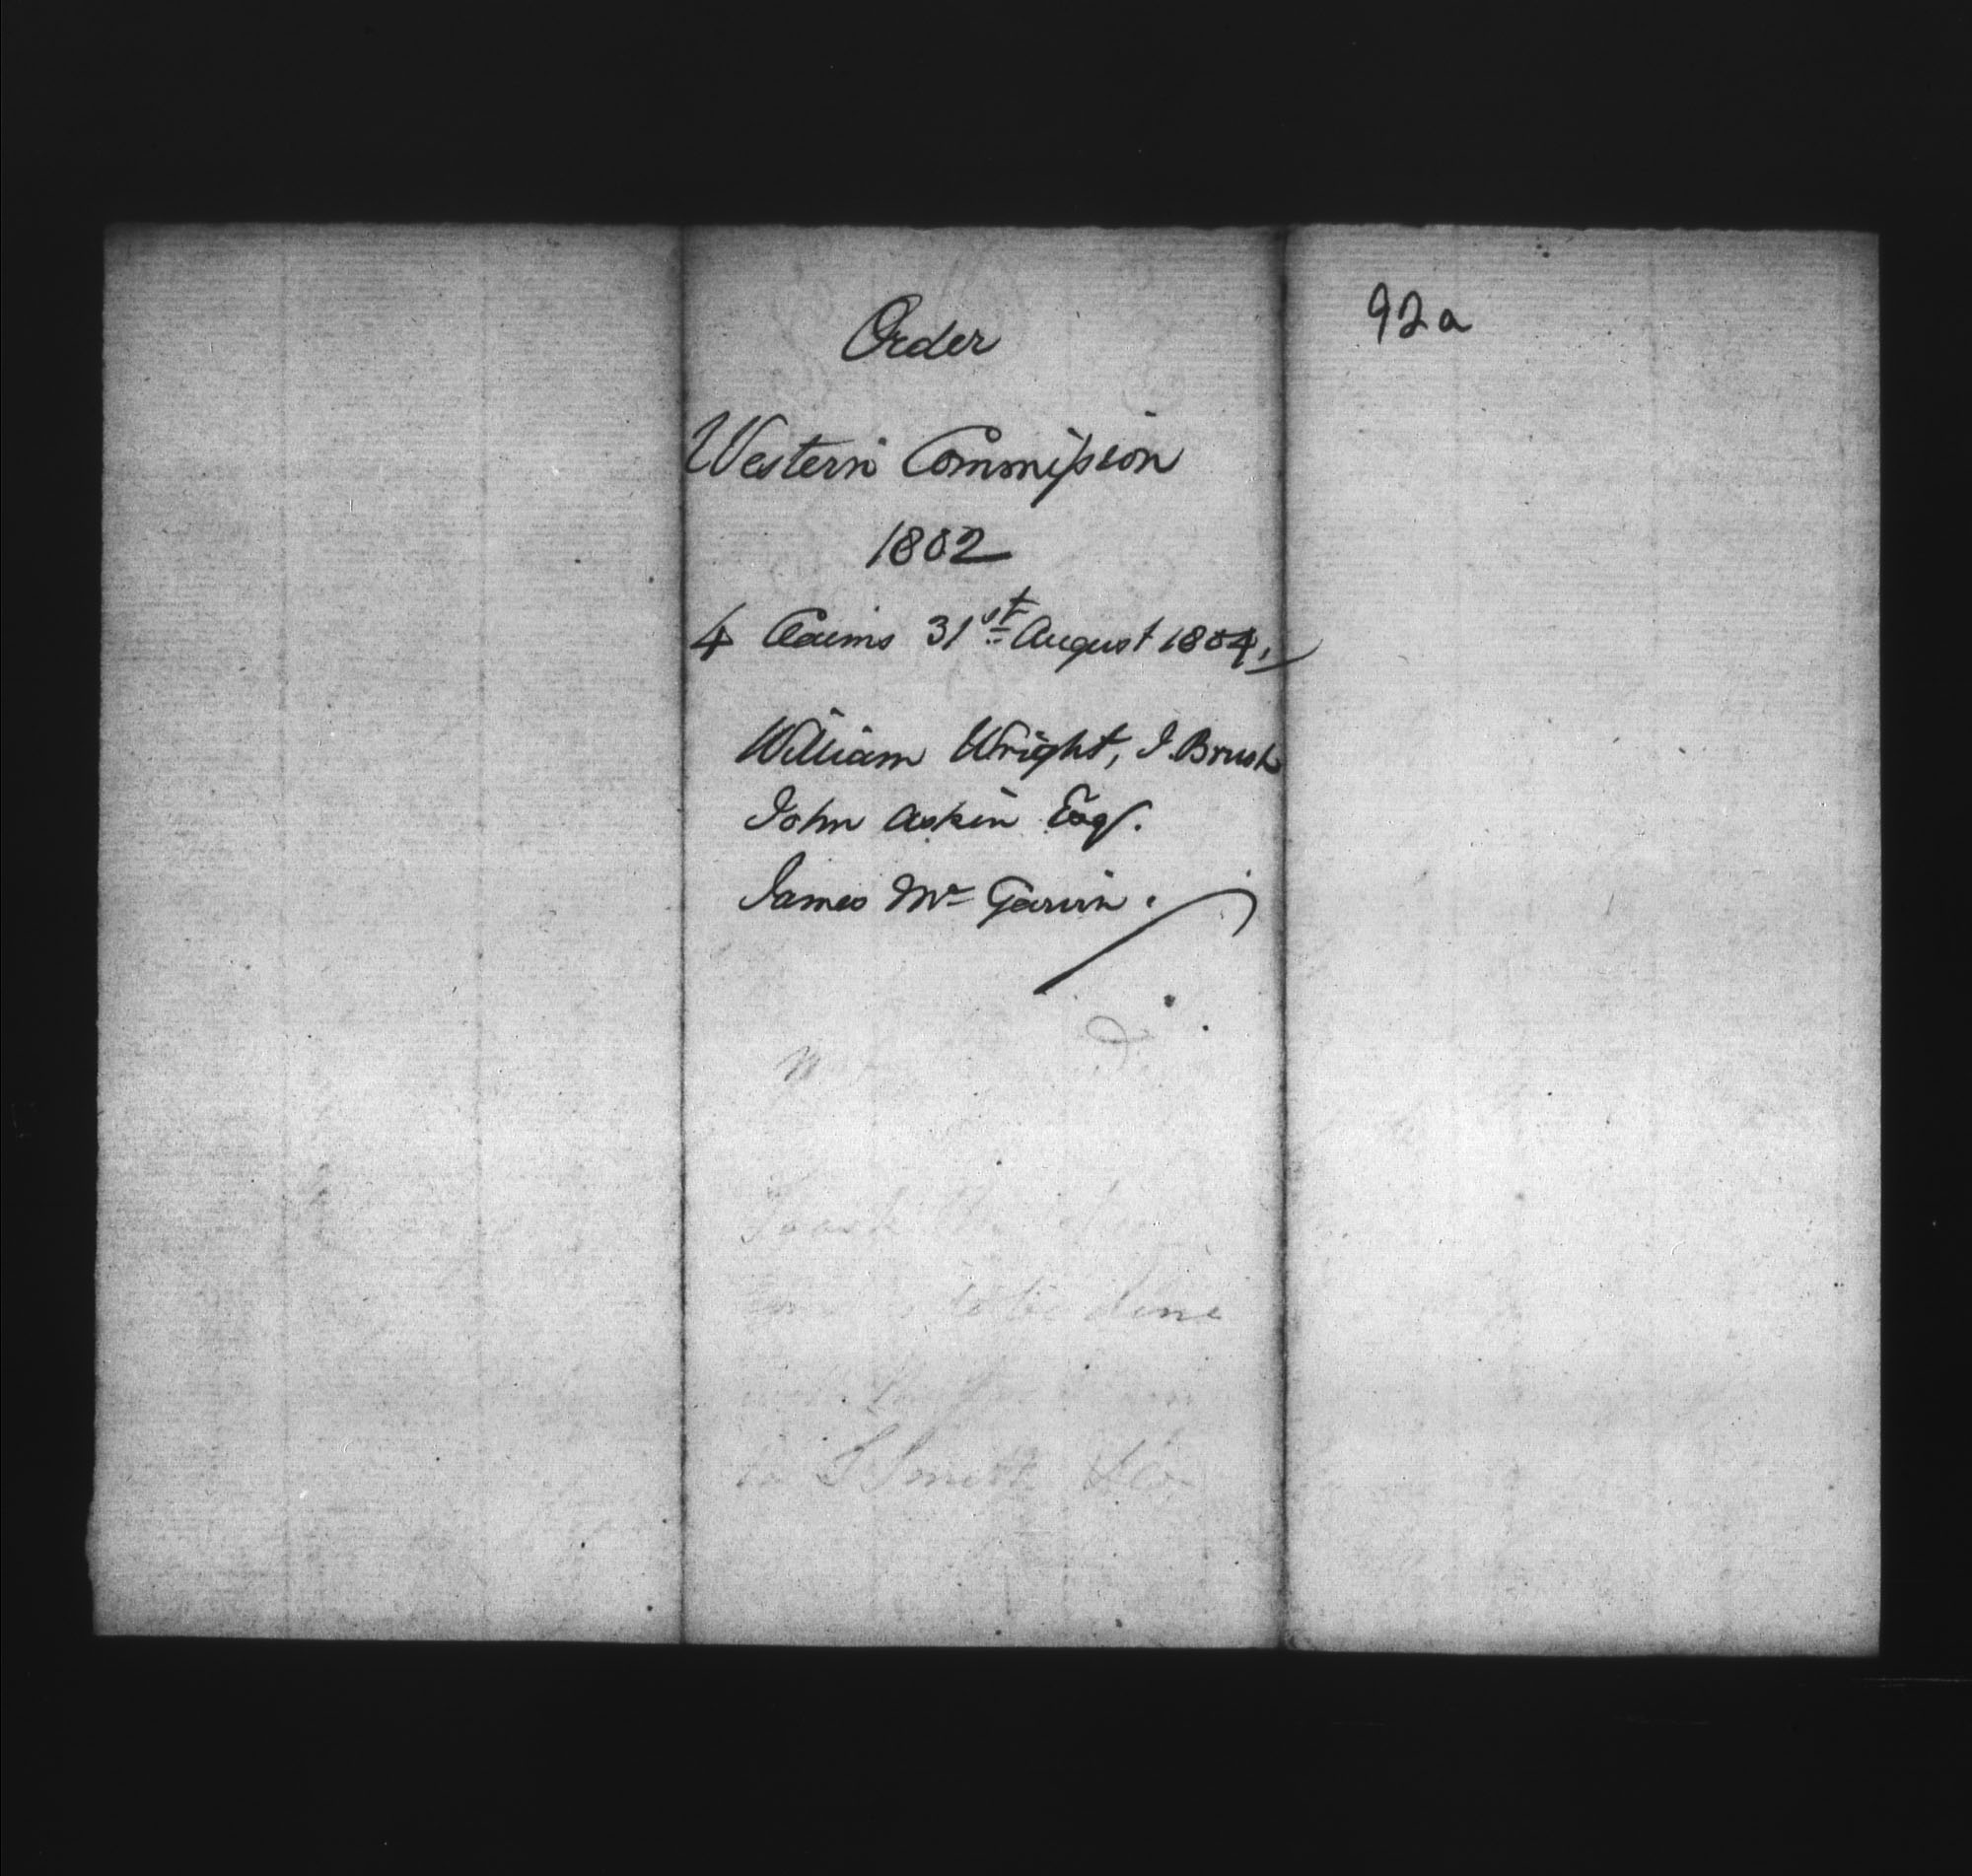 Order
92a
Western Commission
1802
4 Claims 31st August 1804.
William Wright, J. Brush
John Askin Esqr.
James Mc Garvin.
to be done
Smith & Co